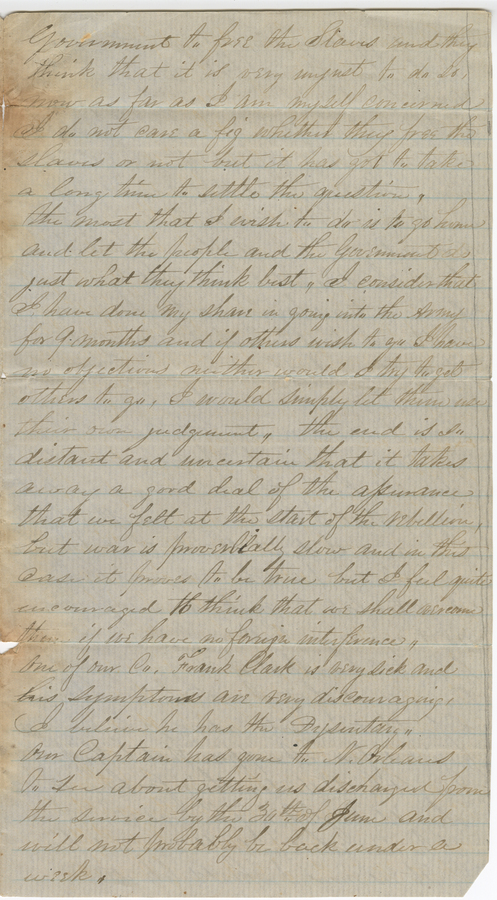 Government to free the Slaves and they
think that it is very unjust to do so,
now as far as I am myself concerned
I do not care a fig whether they free the
slaves or not but it has got to take
a long time to settle the question,,
the most that I wish to do is to go home
and let the people and the Government do
just what they think best,, I consider that
I have done my share in going into the Army
for 9 months and if others wish to go I have
no objections neither would I try to get
others to go, I would simply let them use
their own judgement,, the end is so
distant and uncertain that it takes
away a good deal of the assurance
that we felt at the start of the rebellion,
but war is proverbially slow and in this
case it proves to be true but I feel quite
encouraged to think that we shall overcome
them if we have no foreign interference,,
One of our Co. Frank Clark is very sick and
his symptoms are very discouraging,
I believe he has the Dysentary,,
Our Captain has gone to N. Orleans
to see about getting us discharged from
the service by the 30th of June and
will not probably be back under a
week,